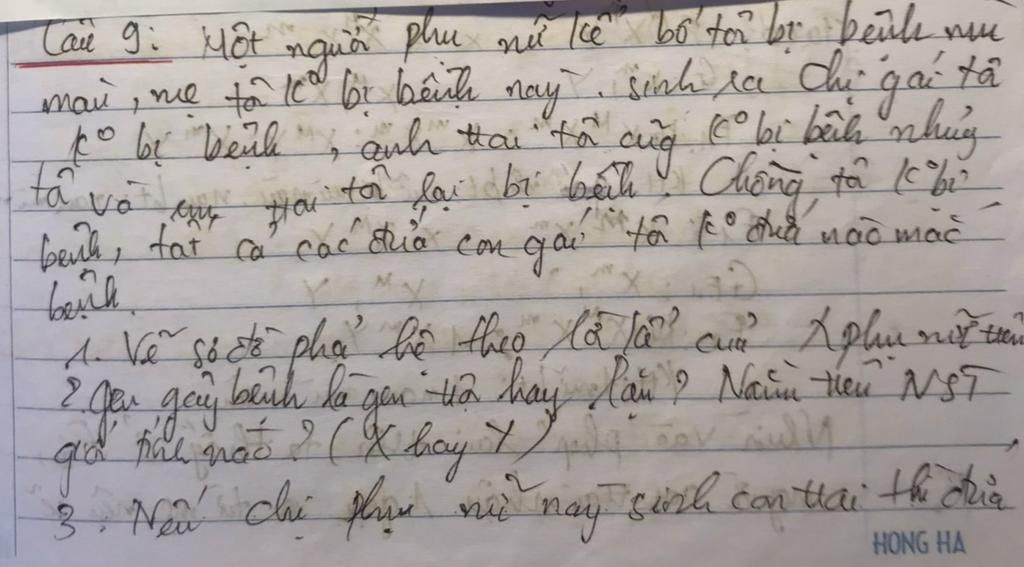 Câu 9: Một người phụ nữ kể bố tôi bị bệnh mù
màu, mẹ tôi k° bị bệnh này. sinh ra chị gái tôi
k° bị bệnh, anh trai tôi cũg k° bị bệnh nhưg
tôi và em trai tôi lại bị bệnh. Chồng tôi k° bị
bệnh, tất cả các đứa con gái tôi k° đứa nào mắc
bệnh.
1. Vẽ sơ đồ phả hệ theo lời kể của phụ nữ trên
2. gen gây bệnh là gen trội hay lặn? Nằm trên NST
giới tính nào? (X hay Y)
3. Nếu chị phụ nữ này sinh con trai thì đứa
HONG HA